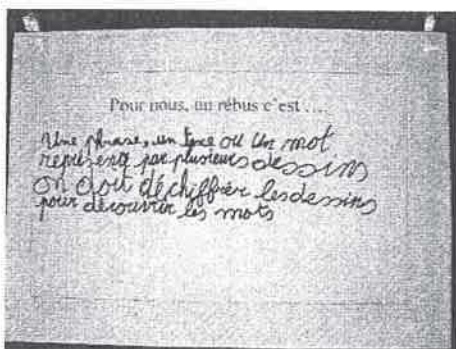 Pour nous, un rébus c'est ....
Une phrase, un texe ou un mot
représenté par plusieurs dessins
on doit déchiffrer les dessins
pour découvrir les mots